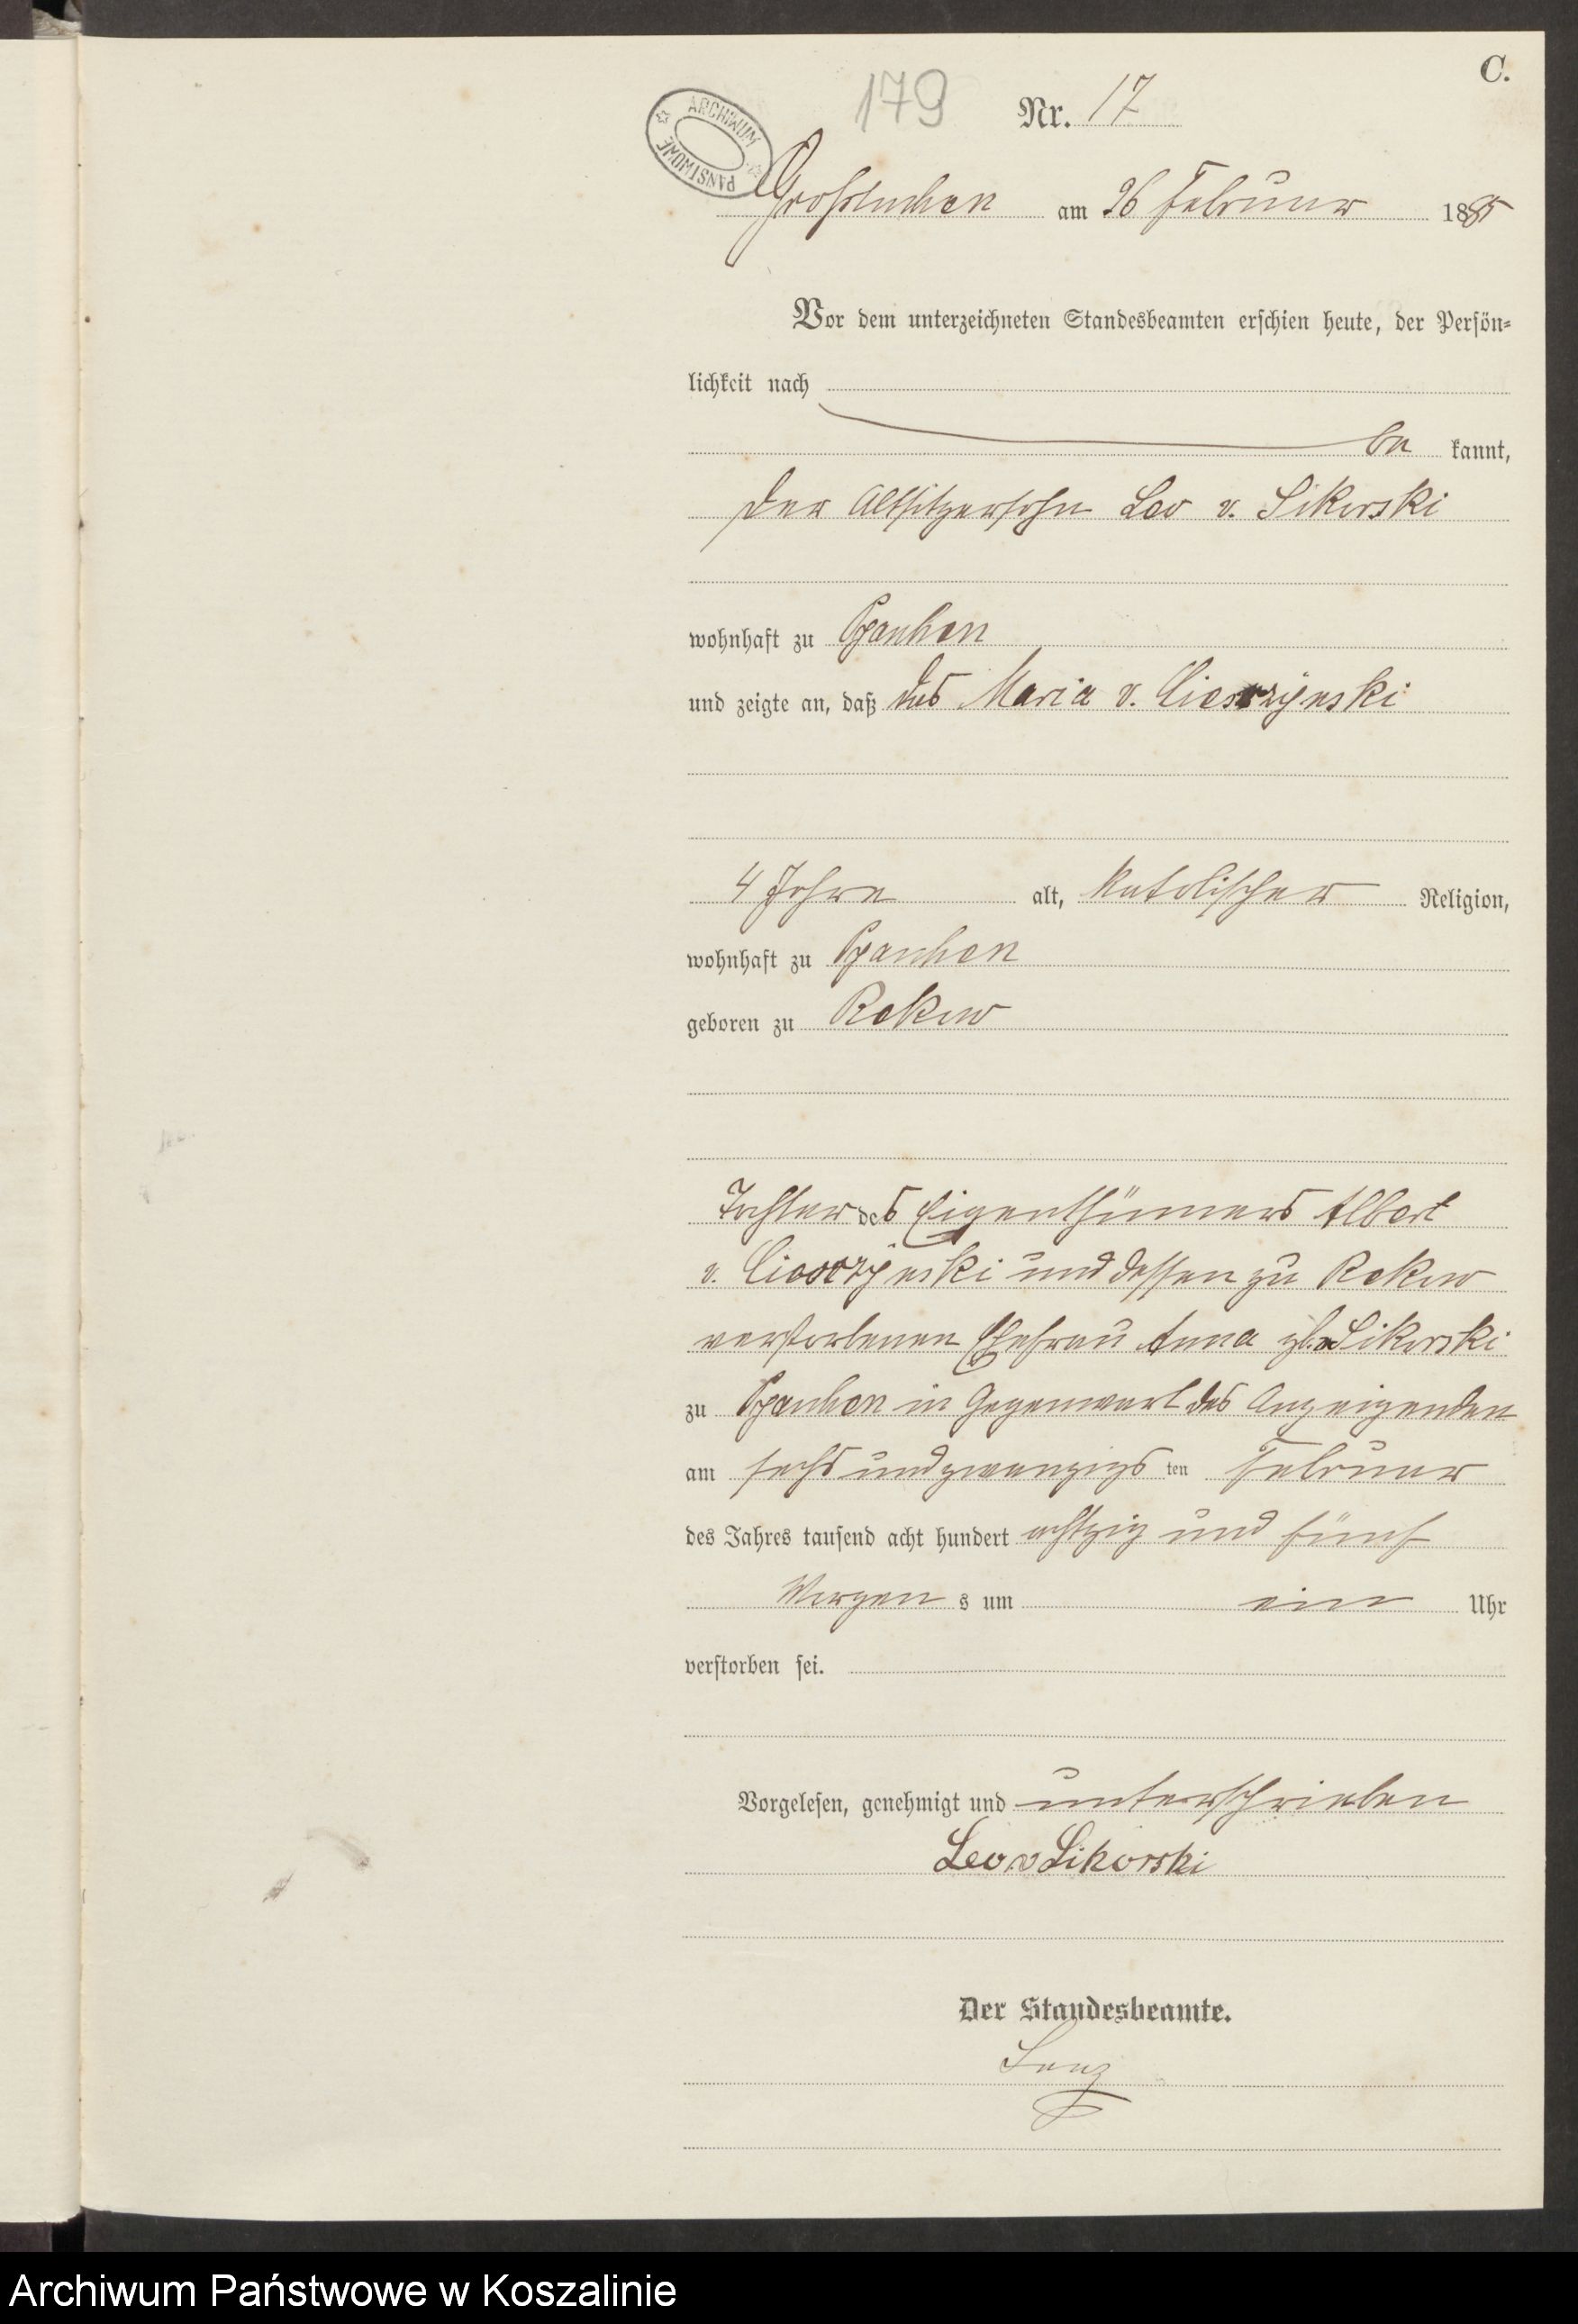 C.
179
Nr. 17
ARCHIWUM PAŃSTWOWE
Grosstuchen am 26 Februar 1885
Vor dem unterzeichneten Standesbeamten erschien heute, der Persön-
lichkeit nach
be kannt,
der Altsitzersohn Leo v. Sikorski
wohnhaft zu
und zeigte an, daß das Maria v.
4 Jahre alt, katolischer Religion,
wohnhaft zu
geboren zu Rekow
Tochter des Eigenthümers Albert
v. und dessen zu Rekow
verstorbenen Ehefrau Anna geb. v Sikorski
zu in Gegenwart des Anzeigenden
am sechs und zwanzigs ten Februar
des Jahres tausend acht hundert achtzig und fünf
Morgen s um ein Uhr
verstorben sei.
Vorgelesen, genehmigt und unterschrieben
Leo v Sikorski
Der Standesbeamte.
Archiwum Państwowe w Koszalinie